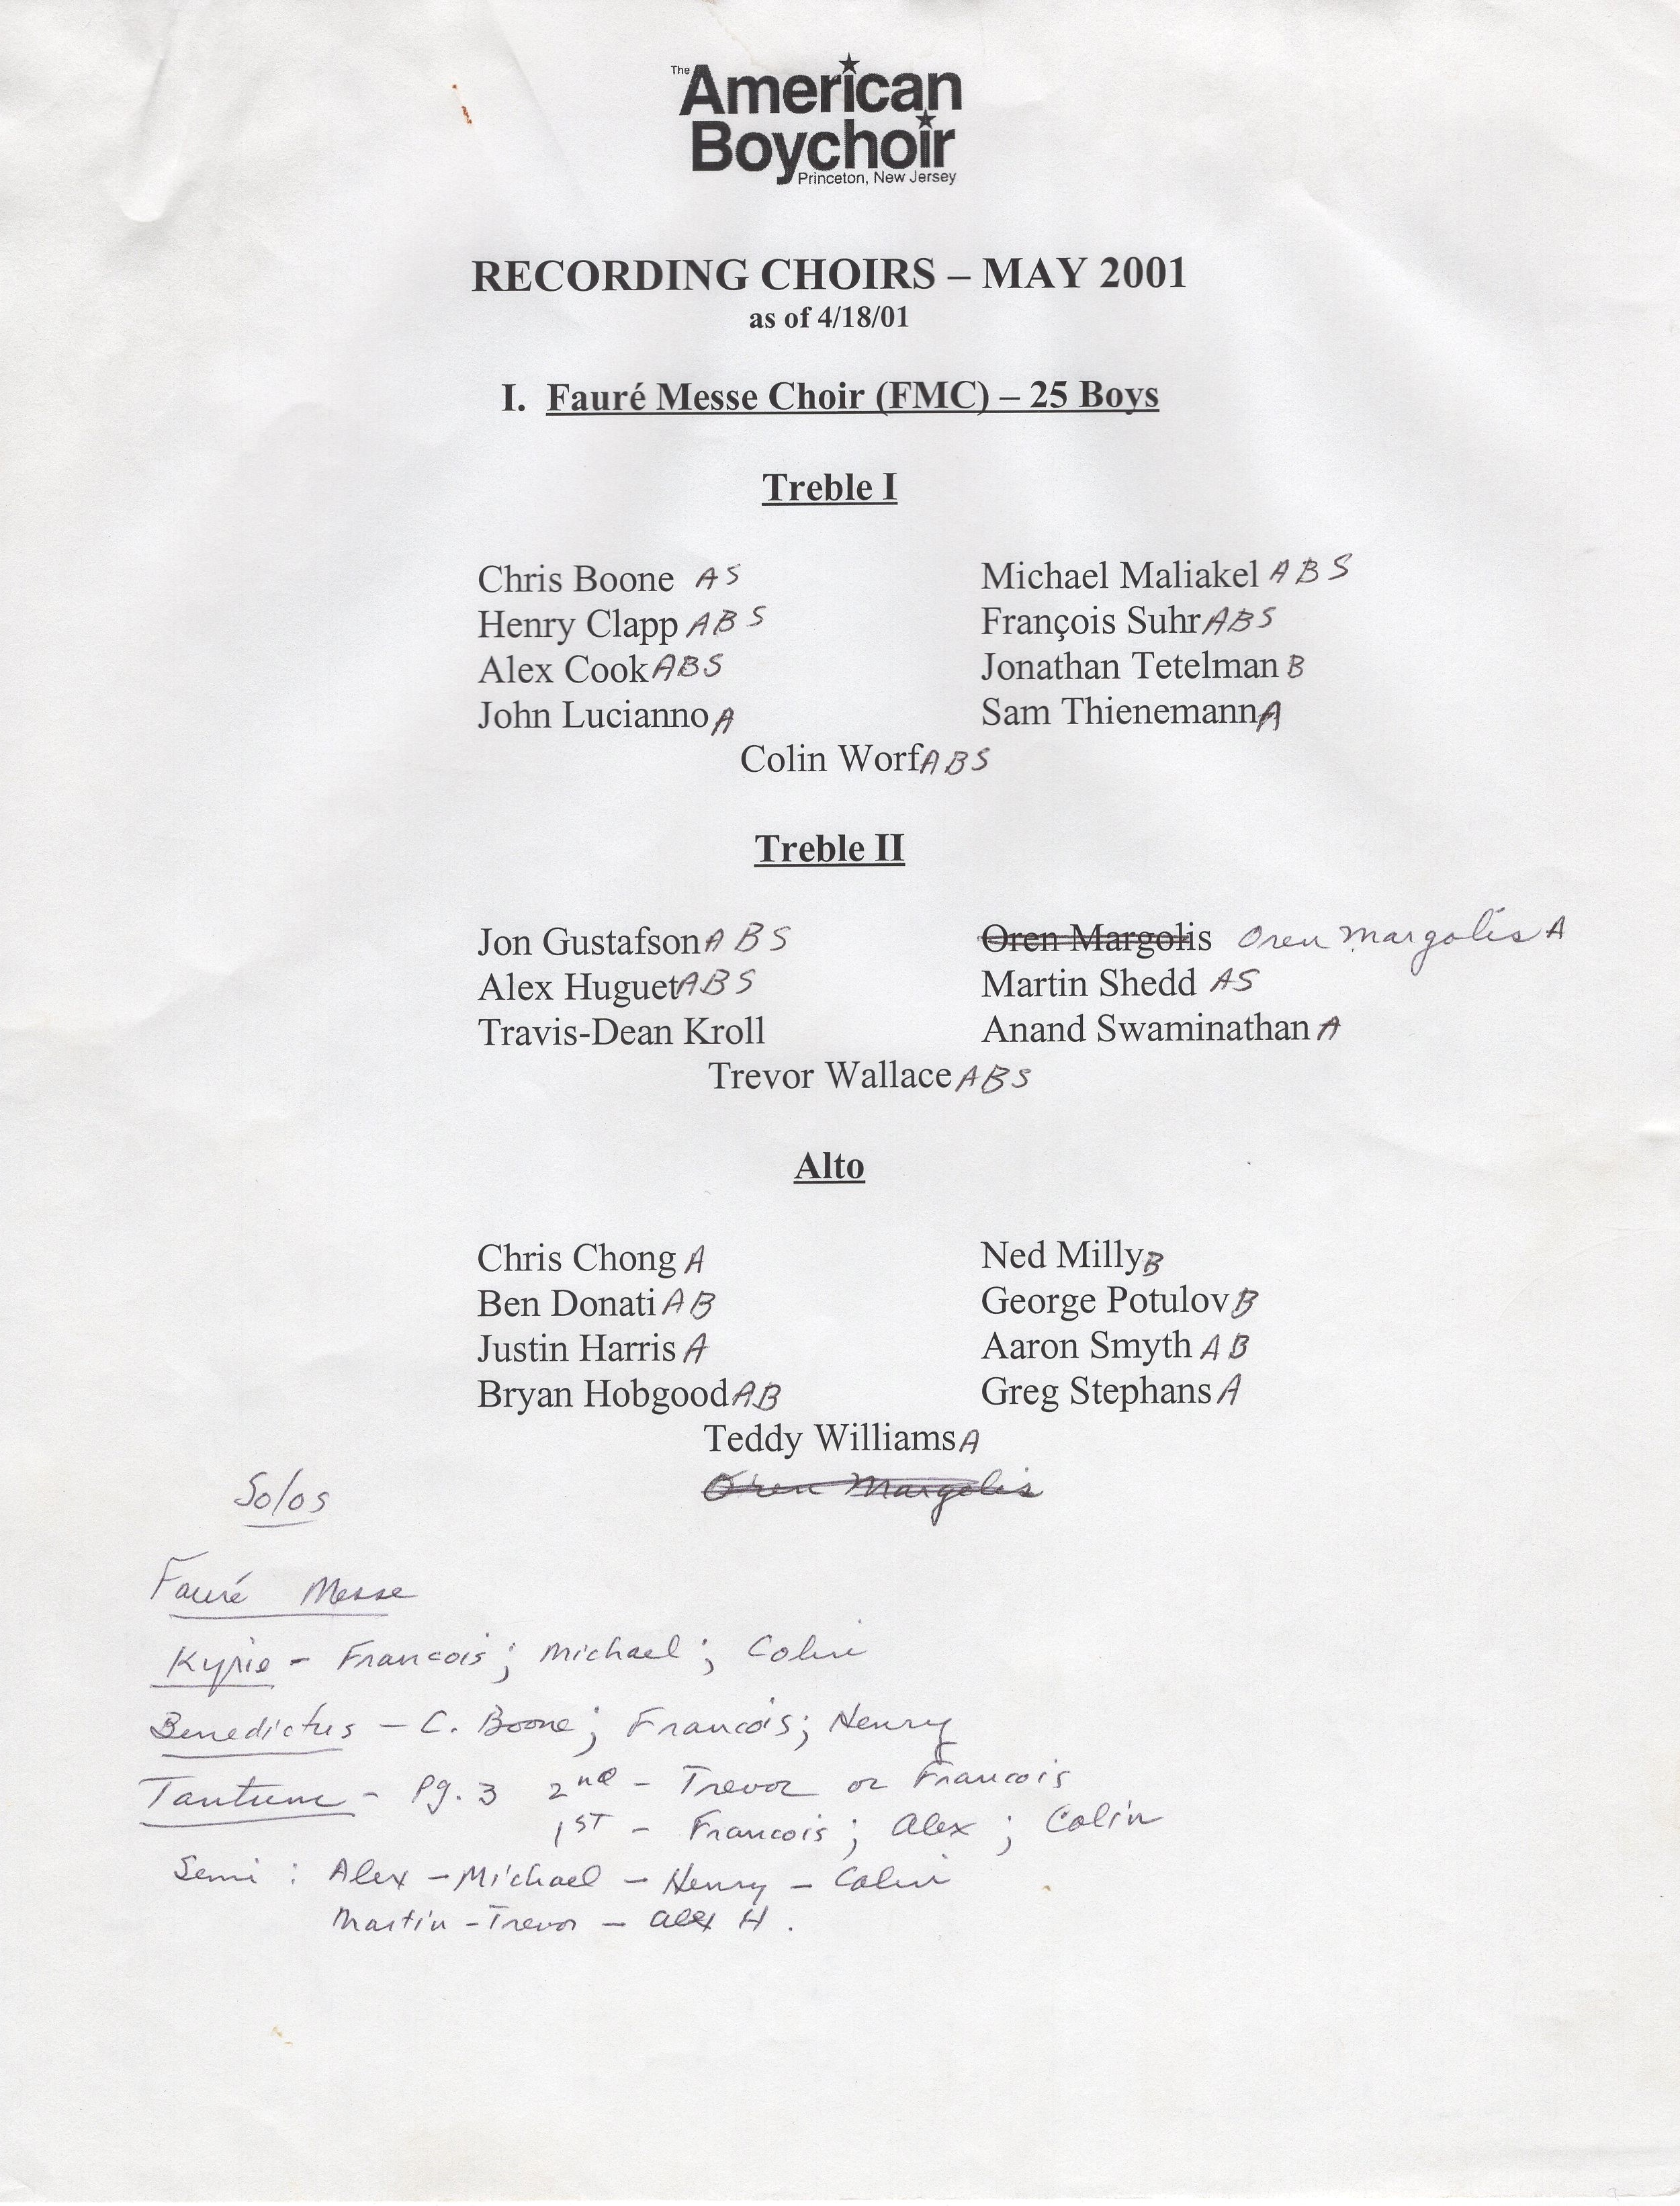 The American
Boychoir
Princeton, New Jersey
RECORDING CHOIRS – MAY 2001
as of 4/18/01
I. Fauré Messe Choir (FMC) – 25 Boys
Treble I
Chris Boone A S
Michael Maliakel A B S
Henry Clapp A B S
François Suhr A B S
Alex Cook A B S
Jonathan Tetelman B
John Lucianno A
Sam Thienemann A
Colin Worf A B S
Treble II
Jon Gustafson A B S
Oren Margolis Oren Margolis A
Alex Huguet A B S
Martin Shedd A S
Travis-Dean Kroll
Anand Swaminathan A
Trevor Wallace A B S
Alto
Chris Chong A
Ned Milly B
Ben Donati A B
George Potulov B
Justin Harris A
Aaron Smyth A B
Bryan Hobgood A B
Greg Stephans A
Teddy Williams A
Oren Margolis
Solos
Fauré Messe
Kyrie - Francois; Michael; Colin
Benedictus – C. Boone; Francois; Henry
Tantum - Pg. 3 2nd - Trevor or Francois
1ST - Francois; Alex; Colin
Semi : Alex – Michael – Henry – Colin
Martin - Trevor – Alex H.